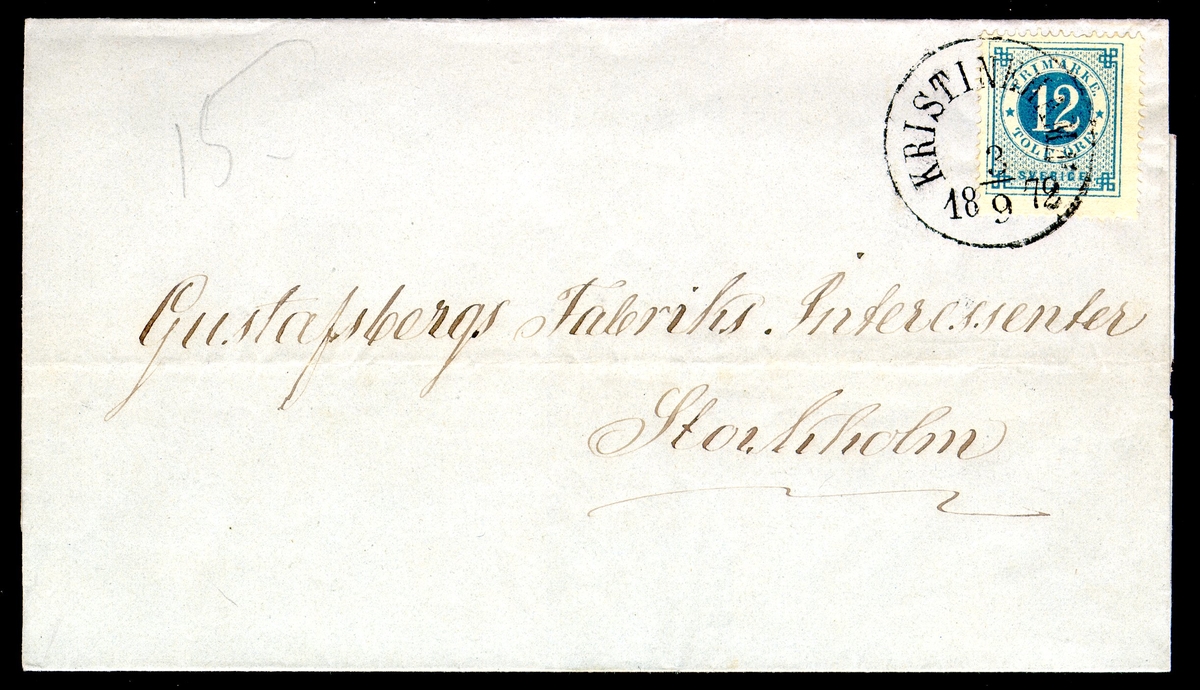 15
FRIMÄRKE.
12
TOLF ÖRE
SVERIGE
2
18 9 72
Gustafsbergs Fabriks. Interessenter
Stockholm